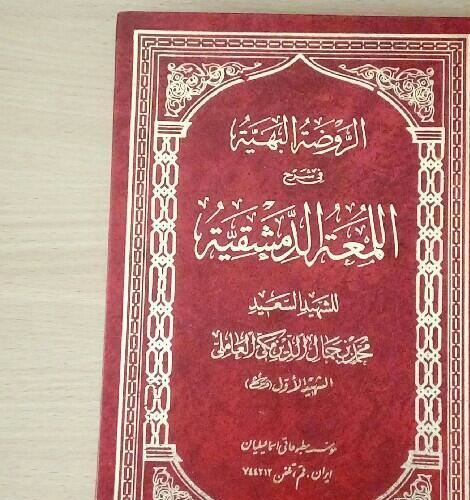 الرَّوضَةُ البَهيَّةُ
في شرح
اللُّمعَةِ الدِّمَشقِيَّة
للشهيد السّعيد
محمّد بن جمال الدين مكّي العاملي
الشهيد الأول
مؤسسه مطبوعاتی اسماعیلیان
ایران، قم، تلفن ٧٤٤٢١٢